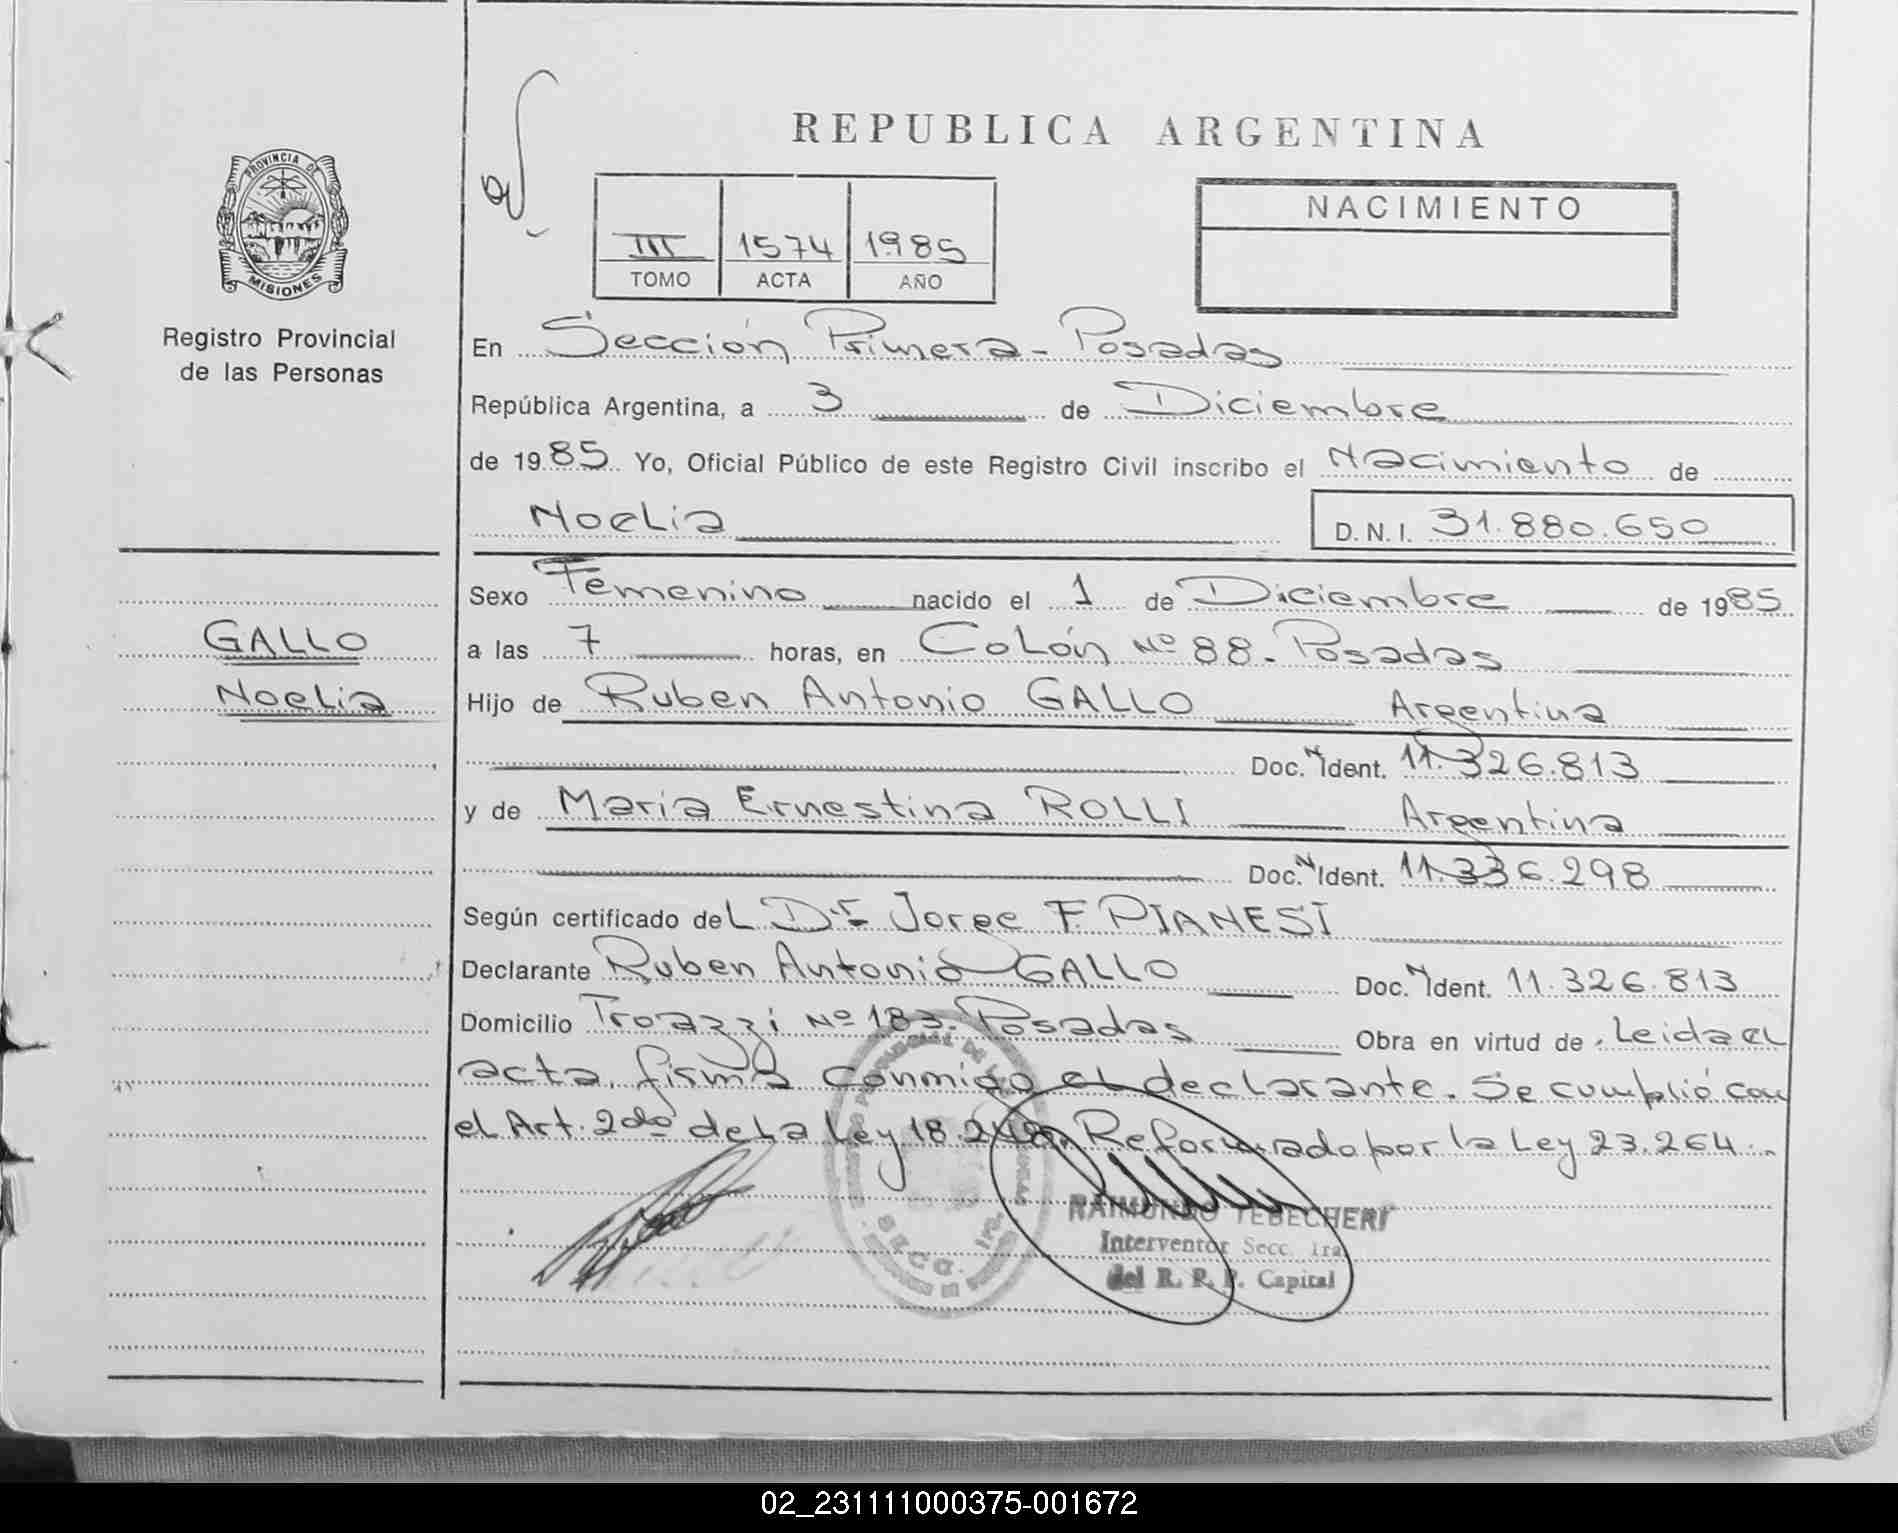 REPUBLICA ARGENTINA
PROVINCIA DE
MISIONES
Registro Provincial
de las Personas
III 1574 1985
TOMO ACTA AÑO
NACIMIENTO
En Sección Primera - Posadas
República Argentina, a 3 de Diciembre
de 1985 Yo, Oficial Público de este Registro Civil inscribo el Nacimiento de
Noelia
D. N. I. 31.880.650
GALLO
Noelia
Sexo Femenino nacido el 1 de Diciembre de 1985
a las 7 horas, en Colón Nº 88 - Posadas
Hijo de Ruben Antonio GALLO Argentina
Doc. N Ident. 11.326.813
y de Maria Ernestina ROLLI Argentina
Doc. N Ident. 11.336.298
Según certificado del Dr Jorge F. PIANESI
Declarante Ruben Antonio GALLO Doc. N Ident. 11.326.813
Domicilio Troazzi Nº 183 - Posadas Obra en virtud de . Leida el
acta, firma conmigo el declarante. Se cumplió con
el Art. 2do de la Ley 18.248, Reformado por la Ley 23.264.-
SECC. 1ra.
RAIMUNDO TEBECHERI
Interventor Secc. 1ra
del R. P. P. Capital
02_231111000375-001672